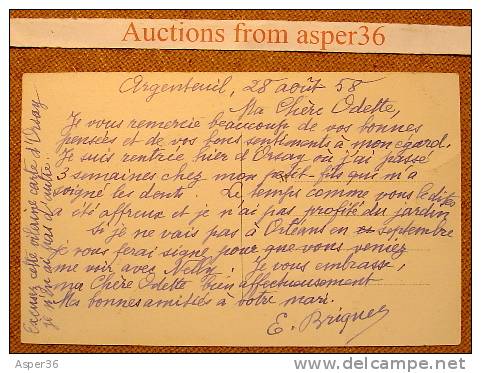 Auctions from asper36
Argenteuil, 28 août 58
Ma Chère Odette,
Je vous remercie beaucoup de vos bonnes
pensées et de vos bons sentiments à mon égard.
Je suis rentrée hier d'Orsay où j'ai passé
3 semaines chez mon petit-fils qui m'a
soigné les dents. Le temps comme vous le dites
a été affreux et je n'ai pas profité du jardin
Si je ne vais pas à Orléans en septembre
je vous ferai signe pour que vous veniez
me voir avec Nelly. Je vous embrasse,
ma Chère Odette bien affectueusement
Mes bonnes amitiés à votre mari.
E. Briquet
Excusez cette vilaine carte d'Orsay
je n'en ai pas d'autre.
Asper36
http://www.delcampe.net